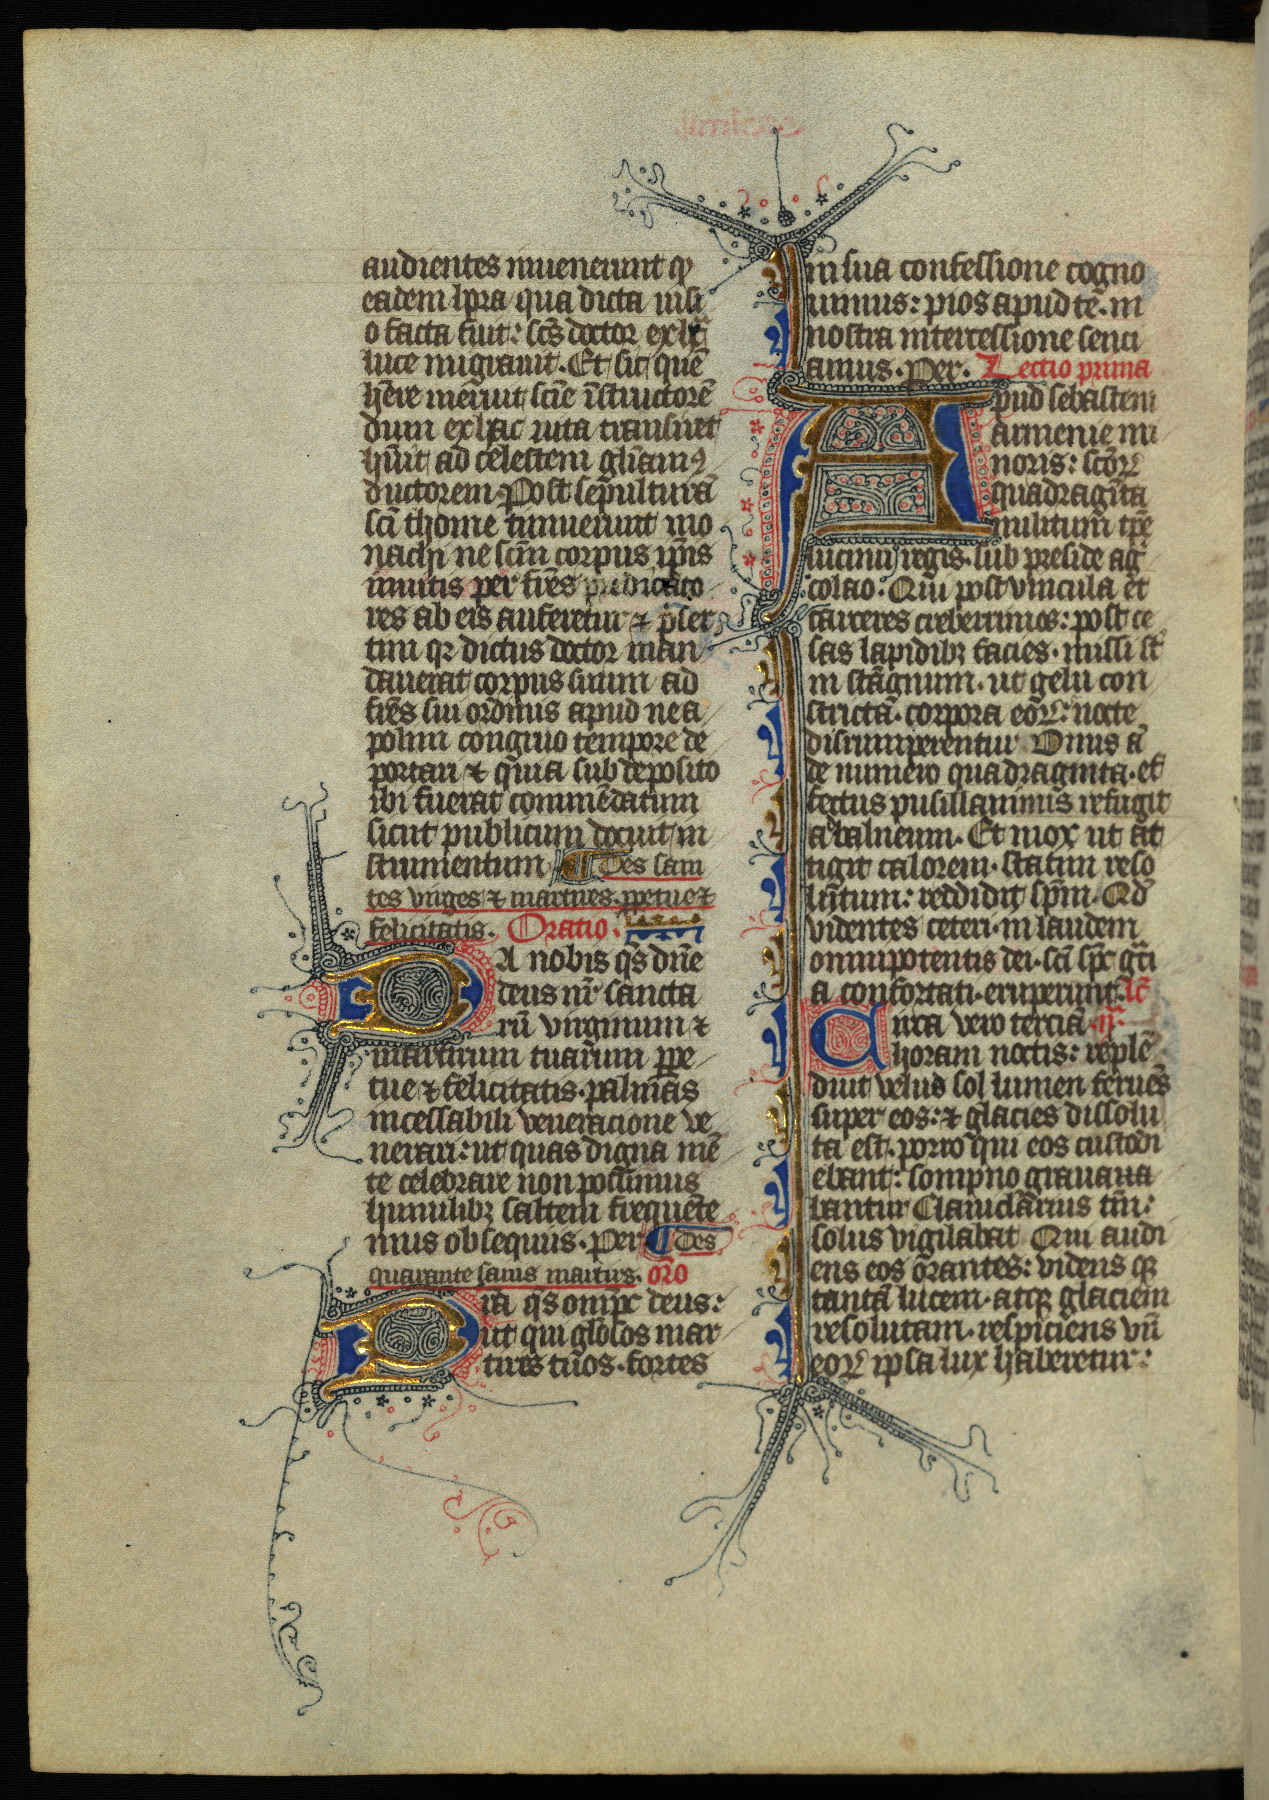 audientes inuenerunt ꝙ
eadem hora qua dicta uisi
o facta fuit: scs doctor ex hac
luce migrauit. Et sic quē
hēre meruit sciē īstructorē
dum ex hac uita transiret
hūit ad celestem gliam 9
ductorem. Post sepulturā
sci thome timuerunt mo
nachi ne scm corpus ipīs
inuitis per frēs predicato
res ab eis auferetur ⁊ p̄ser
tim qr dictus doctor man
dauerat corpus suum ad
frēs sui ordinis apud nea
polim congruo tempore de
portari ⁊ quia sub deposito
ibi fuerat commēdatum
sicut publicum docuit in
strumentum ¶ Des sain
tes virges ⁊ martires. ppetue ⁊
felicitatis. Oratio.
DA nobis qs dnē
deus nr sancta
rū virginum ⁊
martirum tuarum ppe
tue ⁊ felicitatis. palmas
incessabili veneracione ve
nerari: ut quas digna mē
te celebrare non possumus
humilibꝫ saltem frequēte
mus obsequiis. Per ¶ Des
quarante sains martirs. orō
Da qs omps deus:
ut qui gliosos mar
tires tuos. fortes
in sua confessione cogno
uimus: pios apud te. in
nostra intercessione senci
amus. Per. Lectio prima
Apud sebasten
armenie mi
noris: scōꝝ
quadragīta
militum tpē
lucinii regis. sub preside ag
colao: Qui post vincula et
carceres creberrimos: post ce
sas lapidibꝫ facies. missi st
in stagnum. ut gelu con
stricta. corpora eoꝝ: nocte
disrumperentur Vnus a
de numero quadraginta. ef
fectus pusillanimis refugit
ad balneum. Et mox ut at
tigit calorem. statim reso
lutum: reddidit spm. Qd
videntes ceteri. in laudem
omnipotentis dei. sci spc gr̄i
a confortati. eruperunt. lc
Circa vero terciā ij.
horam noctis: replē
diuit velud sol lumen feruēs
super eos: ⁊ glacies dissolu
ta est. porro qui eos custodi
ebant: sompno grauaua
bantur Clauicularius tm:
solus vigilabat Qui audi
ens eos orantes: videns qꝫ
tantā lucem. atqꝫ glaciem
resolutam. respiciens vn̄
eoꝝ ipsa lux haberetur: